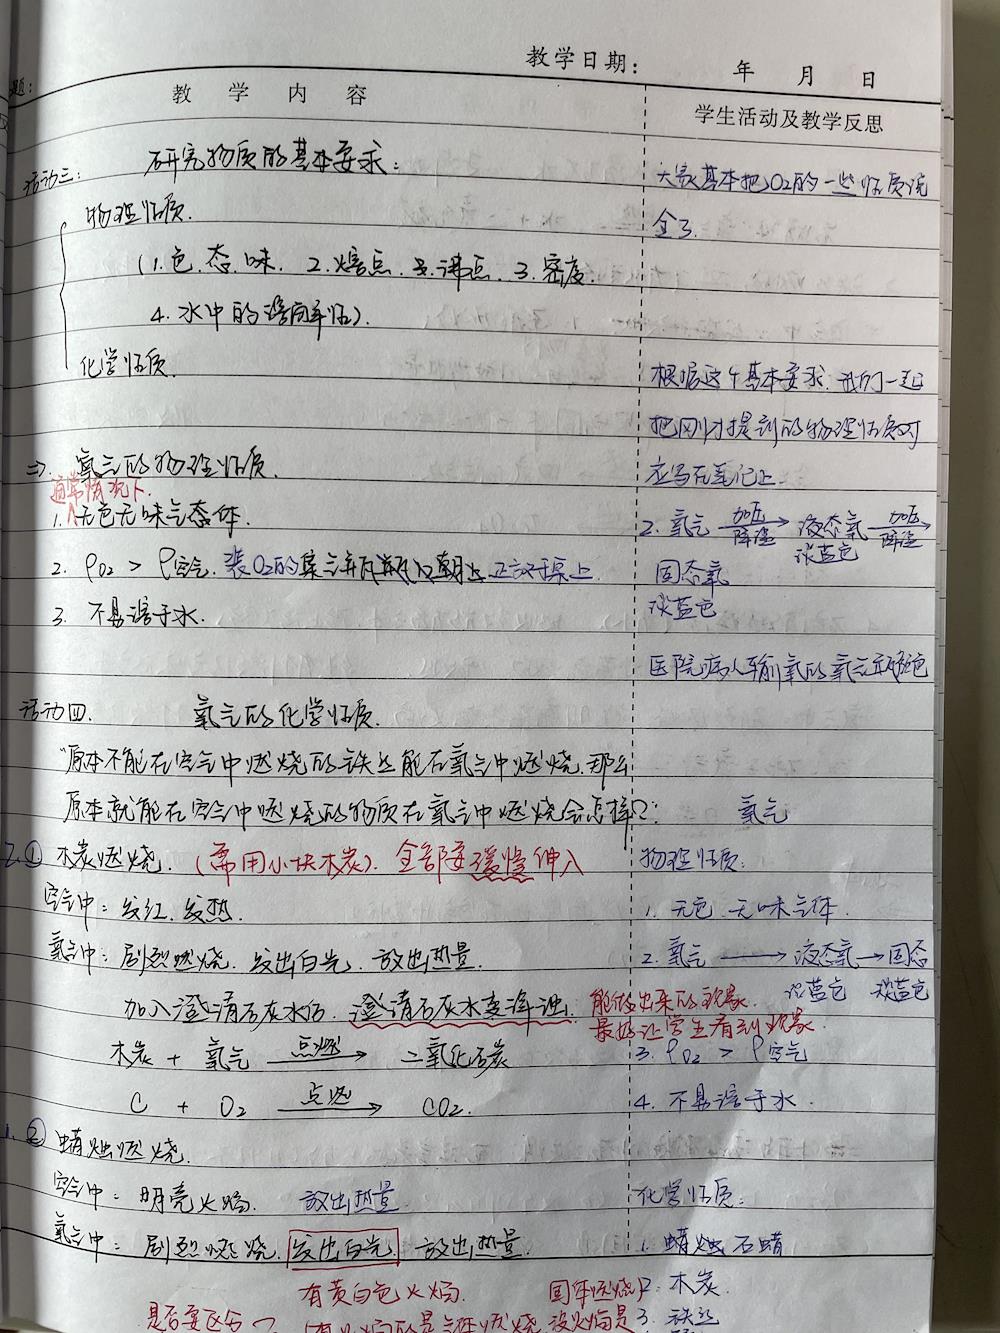 教学日期: 年 月 日
题:
教 学 内 容
学生活动及教学反思
活动三: 研究物质的基本要求:
物理性质.
(1.色.态.味. 2.熔点.沸点. 3.密度.
4.水中的溶解性).
化学性质.
=> 氧气的物理性质.
通常情况下
1.∧无色无味气态体.
2. ρO2 > ρ空气. 装O2的集气瓶瓶口朝上正放于桌上
3. 不易溶于水.
大家基本把O2的一些性质说
全了.
根据这个基本要求.我们一起
把刚才提到的物理性质对
应写在笔记上
2. 氧气 加压 降温 → 液态氧 加压 降温 →
淡蓝色
固态氧
淡蓝色
医院病人输氧的氧气
活动四. 氧气的化学性质.
"原本不能在空气中燃烧的铁丝能在氧气中燃烧.那么
原本就能在空气中燃烧的物质在氧气中燃烧会怎样?:
2.① 木炭燃烧. (需用小块木炭). 全部要缓慢伸入
空气中: 发红.发热.
氧气中: 剧烈燃烧. 发出白光. 放出热量.
加入澄清石灰水后. 澄清石灰水变浑浊.
能做出来的现象.
最好让学生看到现象.
木炭 + 氧气 点燃 → 二氧化碳
C + O2 点燃 → CO2.
1.② 蜡烛燃烧.
空气中: 明亮火焰. 放出热量
氧气中: 剧烈燃烧. 发出白光. 放出热量.
有黄白色火焰. 固体燃烧
是否要区分
有火焰的是气体燃烧 没火焰是
氧气
物理性质:
1. 无色.无味气体.
2. 氧气 → 液态氧 → 固态
淡蓝色 淡蓝色
3. ρO2 > ρ空气
4. 不易溶于水.
化学性质:
1. 蜡烛 石蜡
2. 木炭.
3. 铁丝